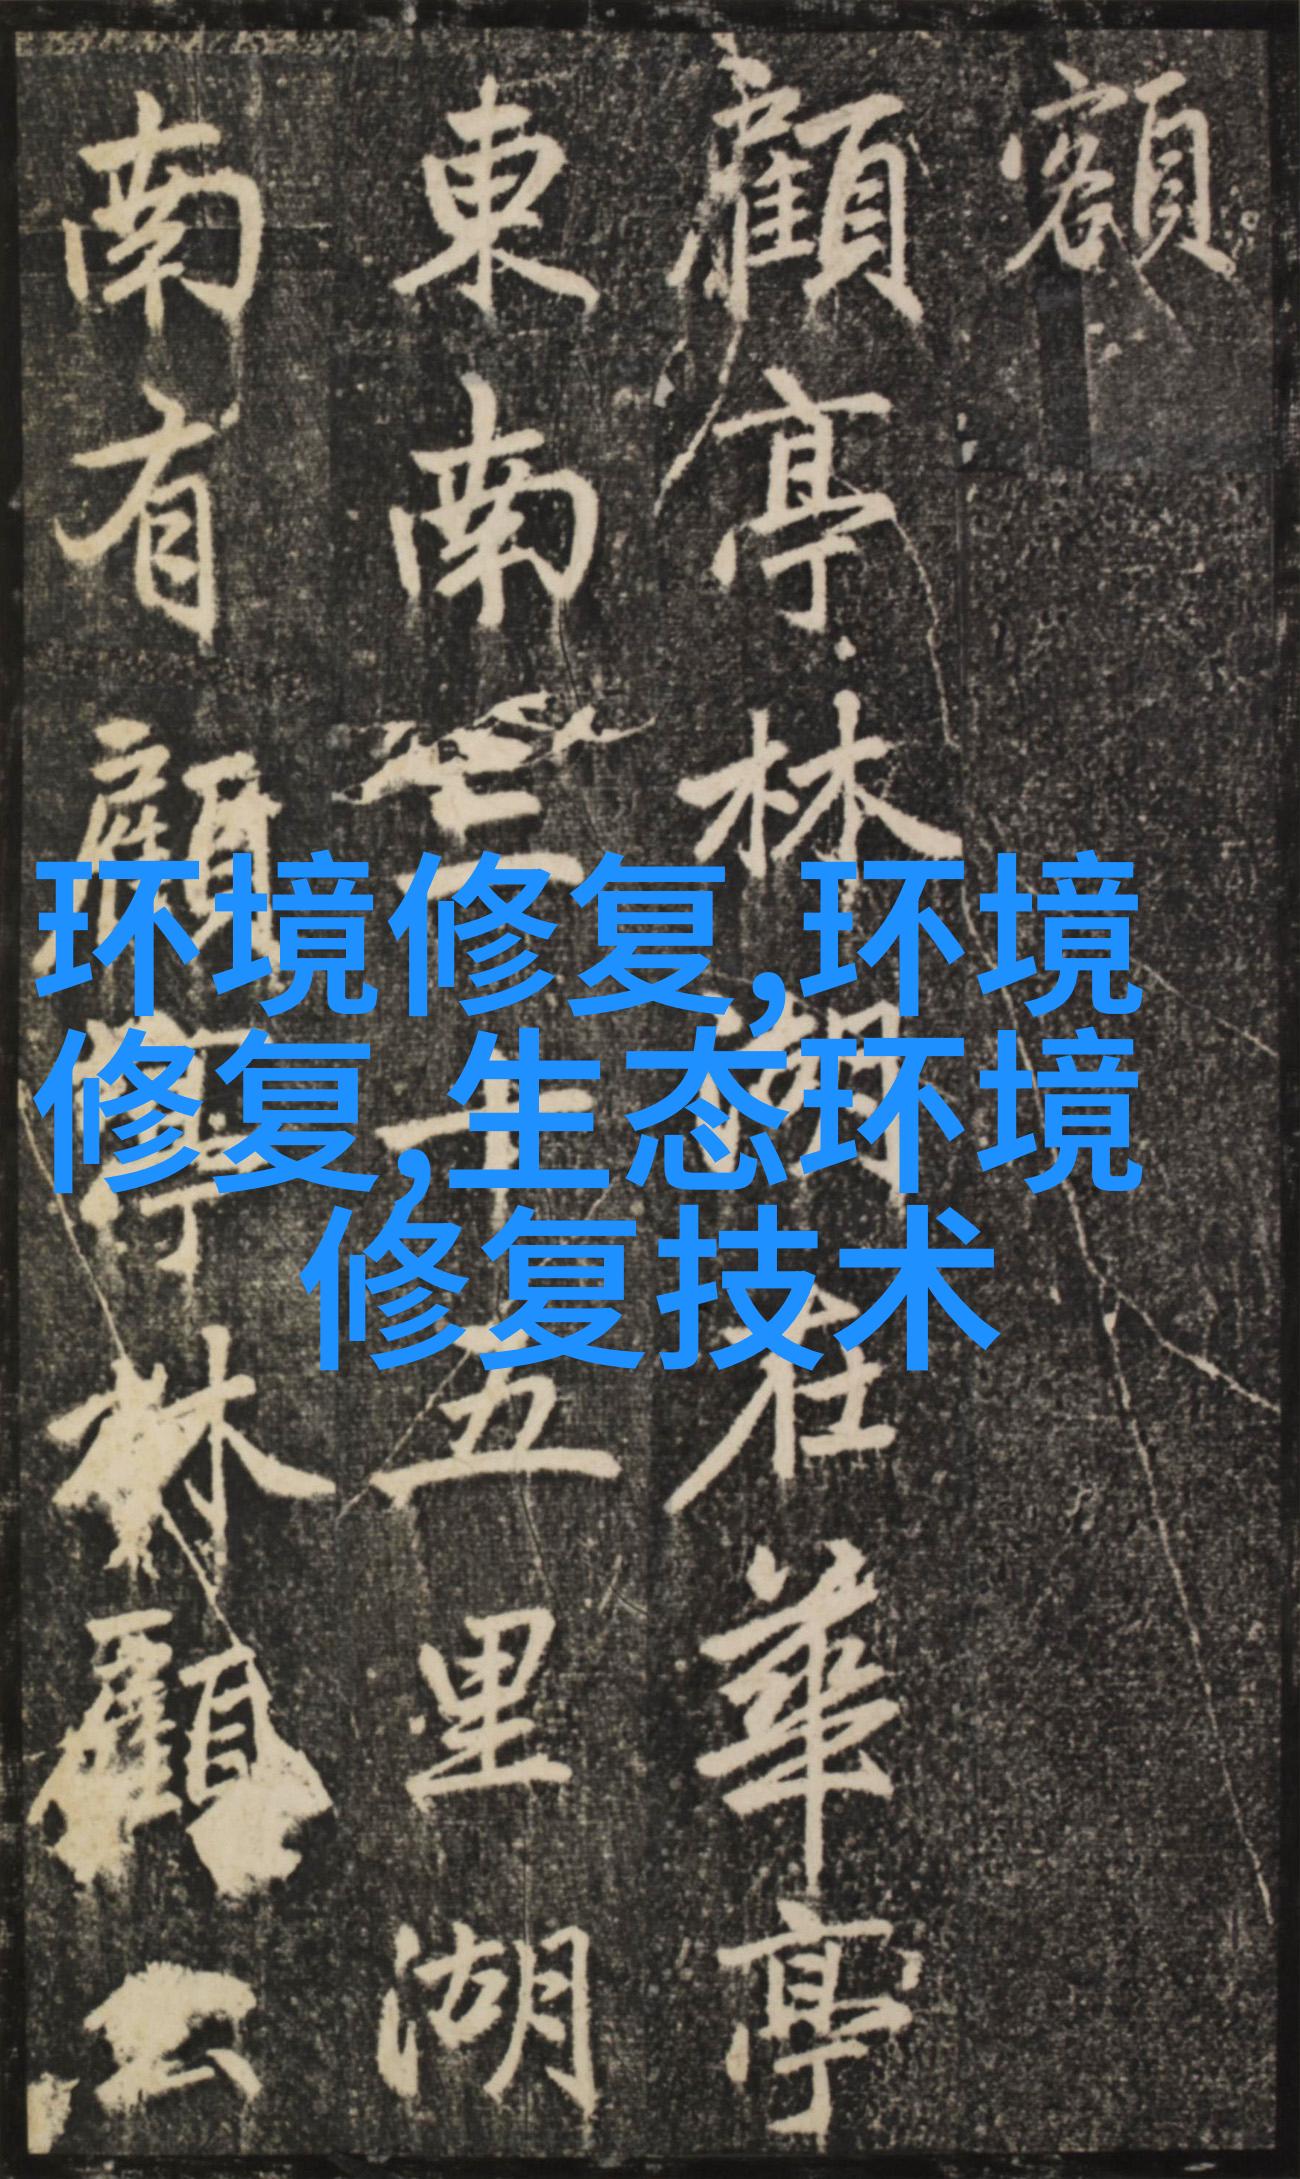 額
顧亭林湖在華亭
東南三十五里湖
南有顧亭林顧公
环境修复,环境
修复,生态环境
修复技术